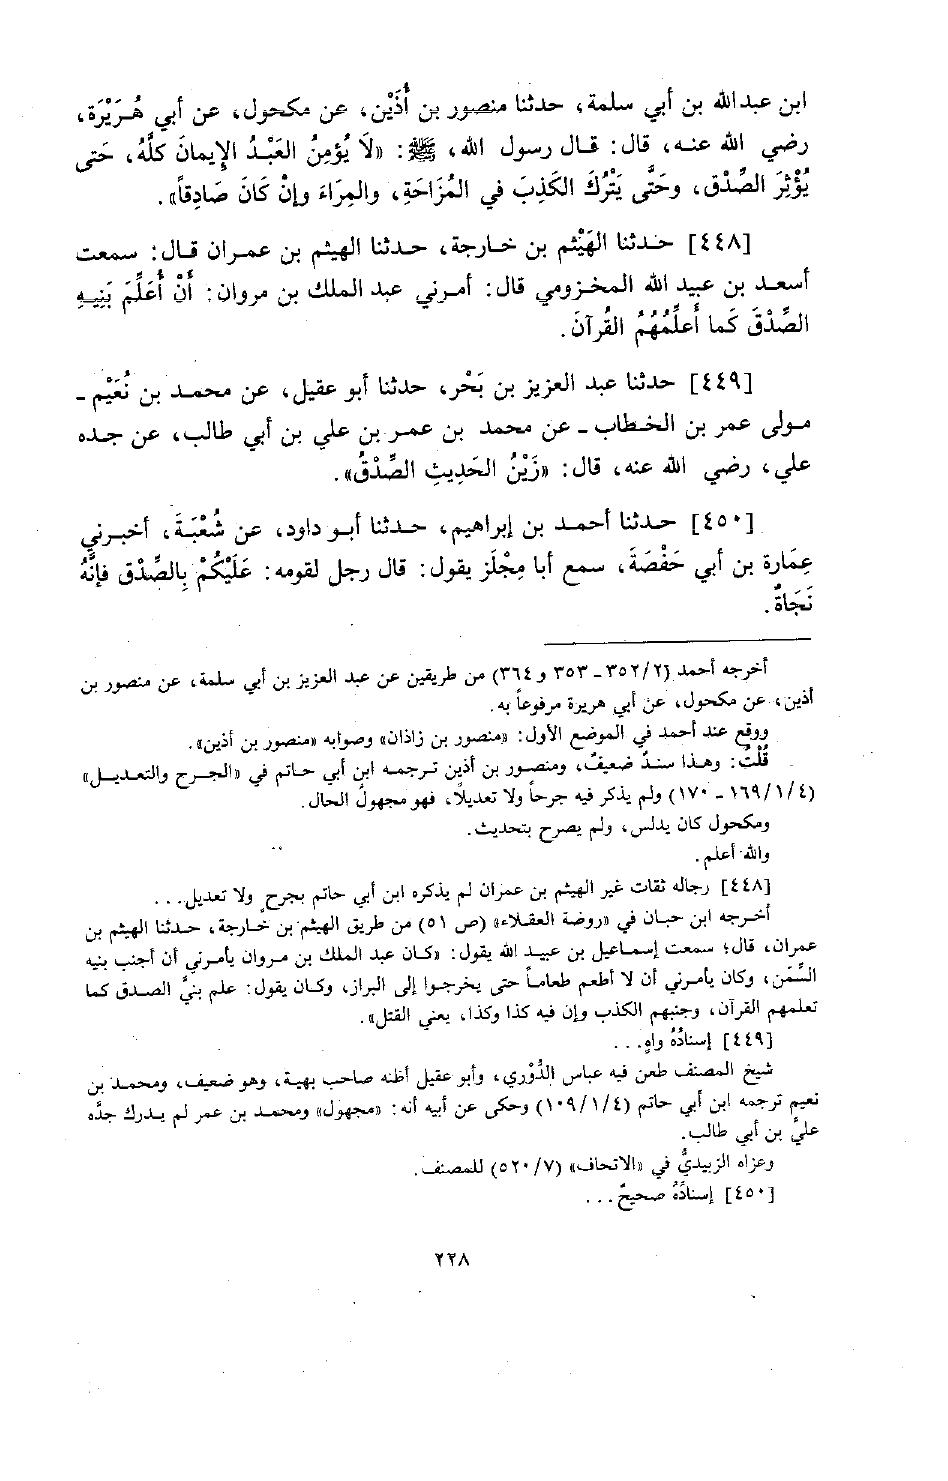 ابن عبدالله بن أبي سلمة، حدثنا منصور بن أُذَيْن، عن مكحول، عن أبي هُرَيْرَة،
رضي الله عنـه، قال: قـال رسول الله، ﷺ: «لَا يُؤمِنُ العَبْـدُ الإِيمانَ كلَّهُ، حَتى
يُؤْثِرَ الصِّدْق، وحَتَّى يَتْرُكَ الكَذِبَ في المُزَاحَةِ، والمِرَاءَ وإنْ كَانَ صَادِقاً».
[٤٤٨] حَـدثنا الهَيْثم بن خـارجة، حـدثنا الهيثم بن عمـران قـال: سمعت
أسعـد بن عبيد الله المخـزومي قال: أمـرني عبد الملك بن مروان: أَنْ أُعَلِّمَ بَنِيـهِ
الصِّدْقَ كَما أُعلِّمُهُمُ القُرآنَ.
[٤٤٩] حدثنا عبد العزيز بن بَحْر، حدثنا أبو عقيل، عن محمـد بن نُعَيْم ـ
مـولى عمر بن الخـطاب ـ عن محمـد بن عمـر بن علي بن أبي طالب، عن جـده
علي، رضي الله عنه، قال: «زَيْنُ الحَدِيثِ الصِّدْقُ».
[٤٥٠] حـدثنا أحمـد بن إبراهيم، حـدثنا أبـو داود، عن شُعْبَـةَ، أخبـرني
عِمَارة بن أبي حَفْصَةَ، سمع أبا مِجْلَز يقول: قال رجل لقومه: عَلَيْكُمْ بِالصِّدْق فإنَّهُ
نَجَاةٌ.
أخرجه أحمد (٣٥٢/٢ ـ ٣٥٣ و ٣٦٤) من طريقين عن عبد العزيز بن أبي سلمة، عن منصور بن
أذين، عن مكحول، عن أبي هريرة مرفوعاً به.
ووقع عند أحمد في الموضع الأول: «منصور بن زاذان» وصوابه «منصور بن أذين».
قُلْتُ: وهـذا سندٌ ضعيفٌ، ومنصور بن أذين تـرجمـه ابن أبي حـاتم في «الجـرح والتعـديـل»
(١٦٩/١/٤ ـ ١٧٠) ولم يذكر فيه جرحاً ولا تعديلاً، فهو مجهولُ الحال.
ومكحول كان يدلس، ولم يصرح بتحديث.
والله أعلم.
[٤٤٨] رجاله ثقات غير الهيثم بن عمران لم يذكره ابن أبي حاتم بجرحٍ ولا تعديل. . .
أخـرجه ابن حبان في «روضة العقلاء» (ص ٥١) من طريق الهيثم بن خـارجة، حـدثنا الهيثم بن
عمران، قال؛ سمعت إسماعيل بن عبيـد الله يقول: «كـان عبد الملك بن مروان يأمرني أن أجنب بنيه
السَّمْن، وكان يأمرني أن لا أطعم طعاماً حتى يخرجوا إلى البراز، وكـان يقول: علم بنيَّ الصدق كما
تعلمهم القرآن، وجنبهم الكذب وإن فيه كذا وكذا، يعني القتل».
[٤٤٩] إسنادُهُ واهٍ. . .
شيخ المصنف طعن فيه عباس الدُّوْري، وأبو عقيل أظنه صاحب بهية، وهو ضعيف، ومحمـد بن
نعيم ترجمه ابن أبي حاتم (١٠٩/١/٤) وحكى عن أبيه أنه: «مجهول» ومحمد بن عمر لم يـدرك جدَّه
عليَّ بن أبي طالب.
وعزاه الزبيديُّ في «الاتحاف» (٥٢٠/٧) للمصنف.
[٤٥٠] إسنادُهُ صحيحٌ. . .
٢٢٨